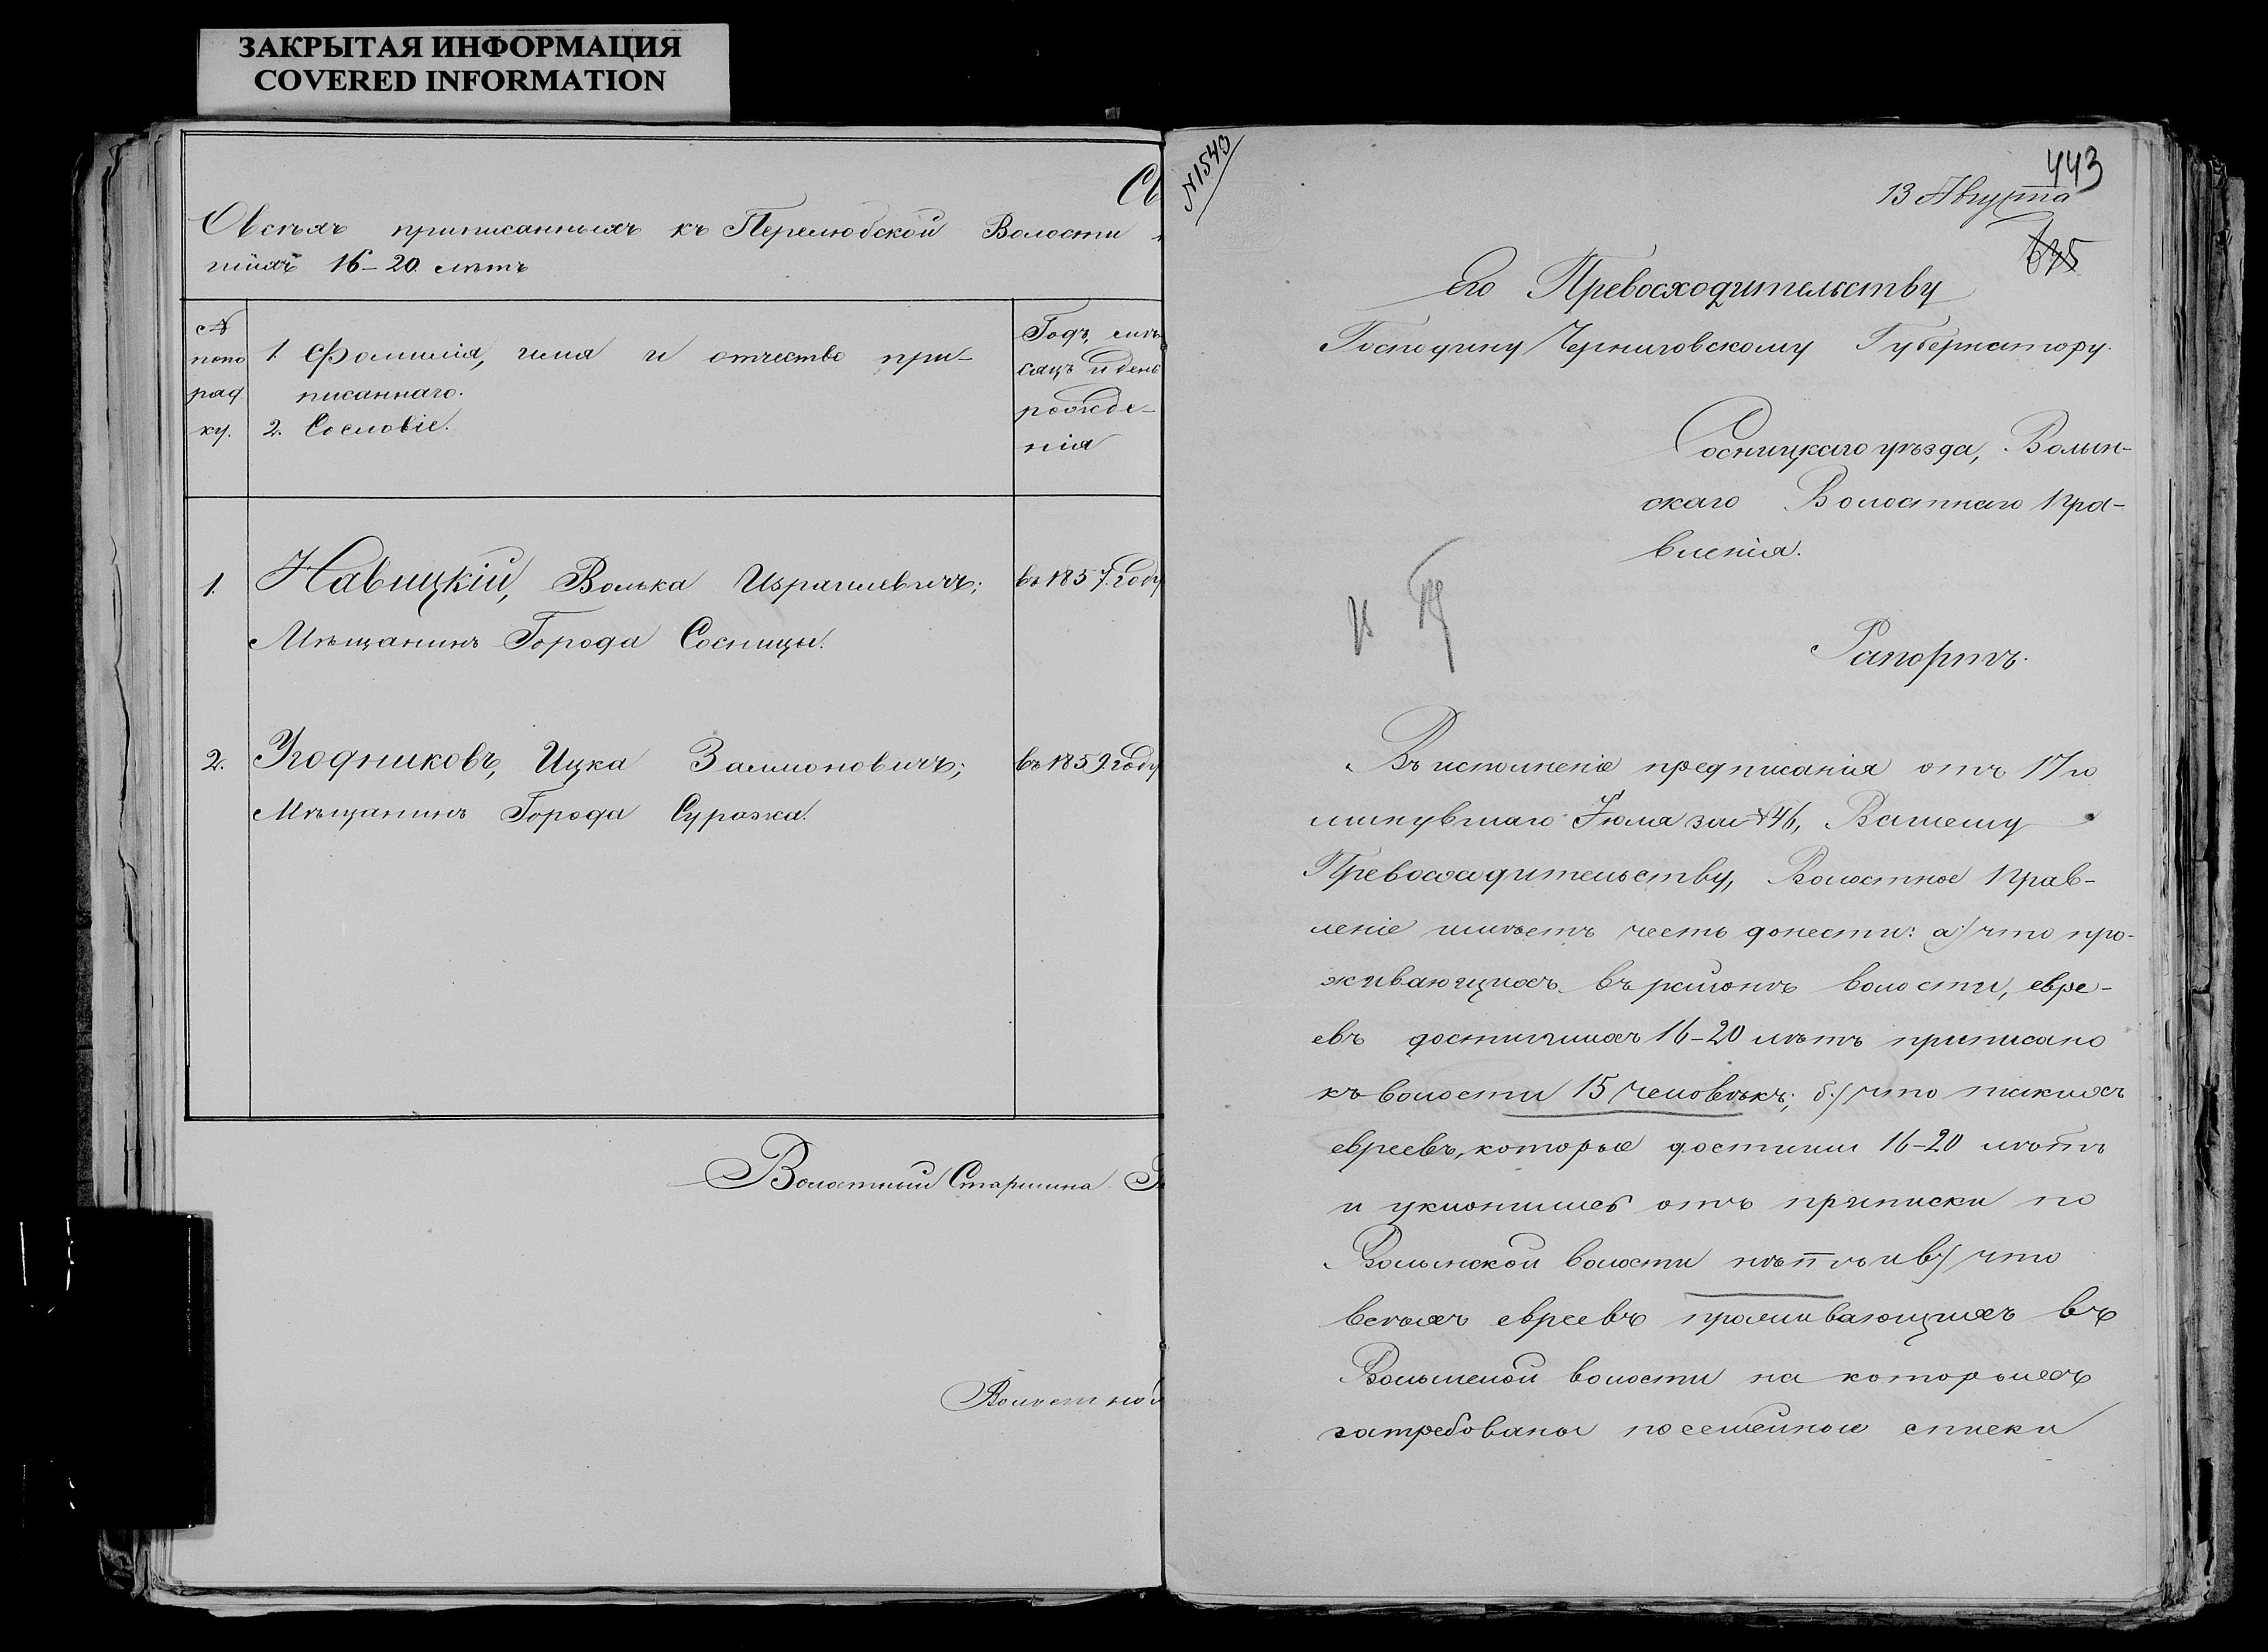 ЗАКРЫТАЯ ИНФОРМАЦИЯ
COVERED INFORMATION
Св
О всѣхъ приписанныхъ къ Перелюбской Волости
тшихъ 16-20 лѣтъ
№ попо ряд ку.
1. Фамилія, имя и отчество при-
писаннаго.
2. Сословіе.
Годъ, мѣ-
сяцъ и день
рожде-
нія
1. Навицкій, Волька Израилевичъ; въ 1857. году
Мѣщанинъ Города Сосницы.
2. Угодниковъ, Ицка Залмоновичъ; въ 1859. году
Мѣщанинъ Города Суража.
Волостный Старшина
Волостной
№ 1543
443
13 Августа
635
Его Превосходительству
Господину Черниговскому Губернатору.
Сосницкаго уѣзда, Волын-
скаго Волостнаго Пра-
вленія.
Рапортъ.
Въ исполненіе предписанія отъ 17го
минувшаго Іюля за № 46, Вашему
Превосходительству, Волостное Прав-
леніе имѣетъ честь донести: а) что про-
живающихъ въ районѣ волости, евре-
евъ достигшихъ 16-20 лѣтъ приписано
къ волости 15 человѣкъ; б) что такихъ
евреевъ, которые достигли 16-20 лѣтъ
и уклонились отъ приписки по
Волынской волости нѣтъ и в) что
всѣхъ евреевъ проживающихъ въ
Волынской волости на которыхъ
затребованы посемейные списки